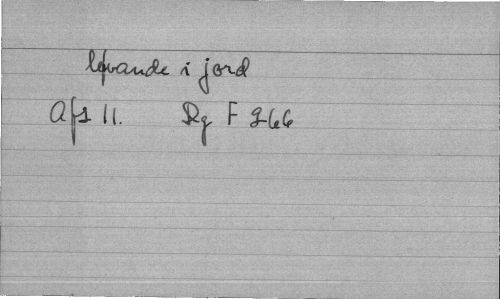 levande i jord
Afs 11. Rg F 266